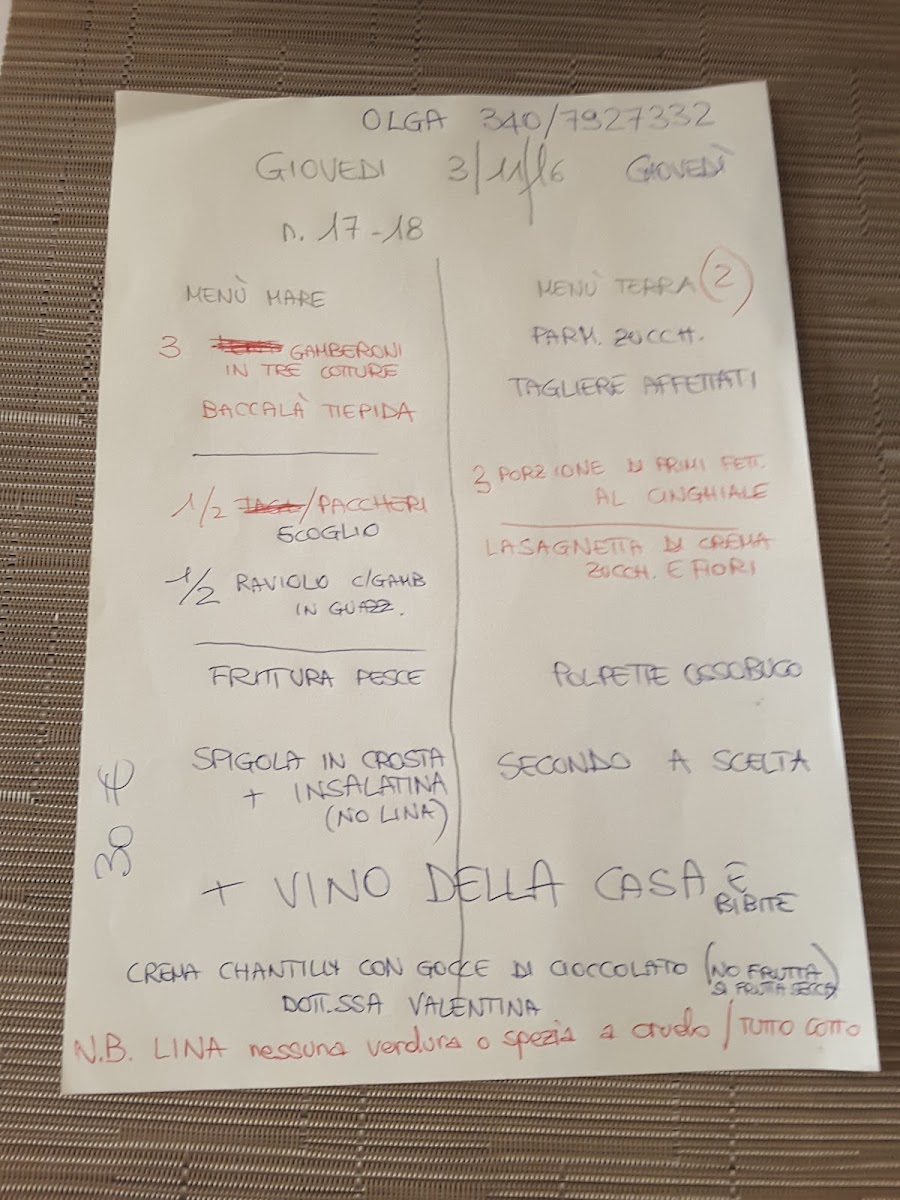 OLGA 340/7927332
GIOVEDI 3/11/16 GIOVEDÌ
n. 17-18
MENÙ MARE
3 GAMBERONI
IN TRE COTTURE
BACCALÀ TIEPIDA
1/2 /PACCHERI
SCOGLIO
1/2 RAVIOLO C/GAMB
IN GUAZZ.
FRITTURA PESCE
SPIGOLA IN CROSTA
+ INSALATINA
(NO LINA)
MENÙ TERRA (2)
PARM. ZUCCH.
TAGLIERE AFFETTATI
3 PORZIONE DI PRIMI FETT.
AL CINGHIALE
LASAGNETTA DI CREMA
ZUCCH. E FIORI
POLPETTE OSSOBUCO
SECONDO A SCELTA
30 €
+ VINO DELLA CASA E
BIBITE
CREMA CHANTILLY CON GOCCE DI CIOCCOLATO (NO FRUTTA
SI FRUTTA SECCA)
DOTT.SSA VALENTINA
N.B. LINA nessuna verdura o spezia a crudo / TUTTO COTTO